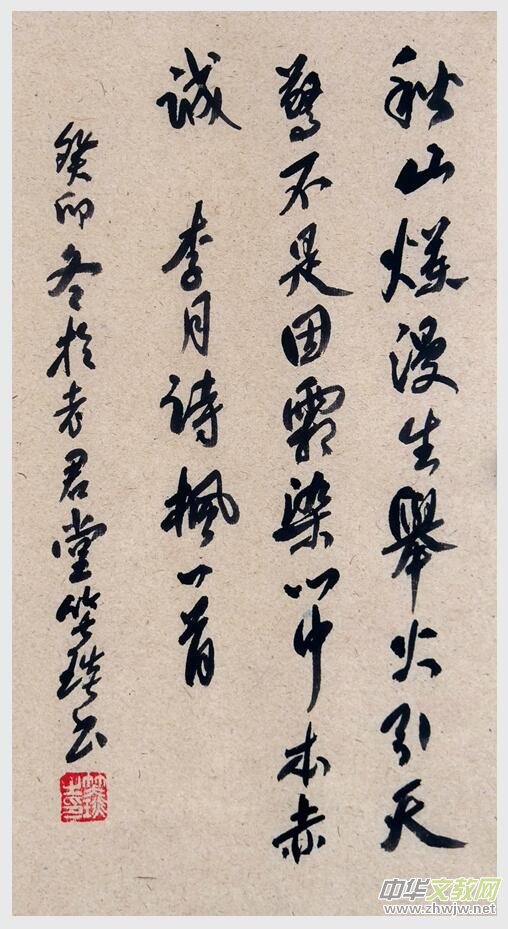 秋山爛漫生舉火引天
驚不是因霜染心中本赤
诚 李月诗枫一首
癸卯冬於老君堂笑书
中华文教网
www.zhwjw.net